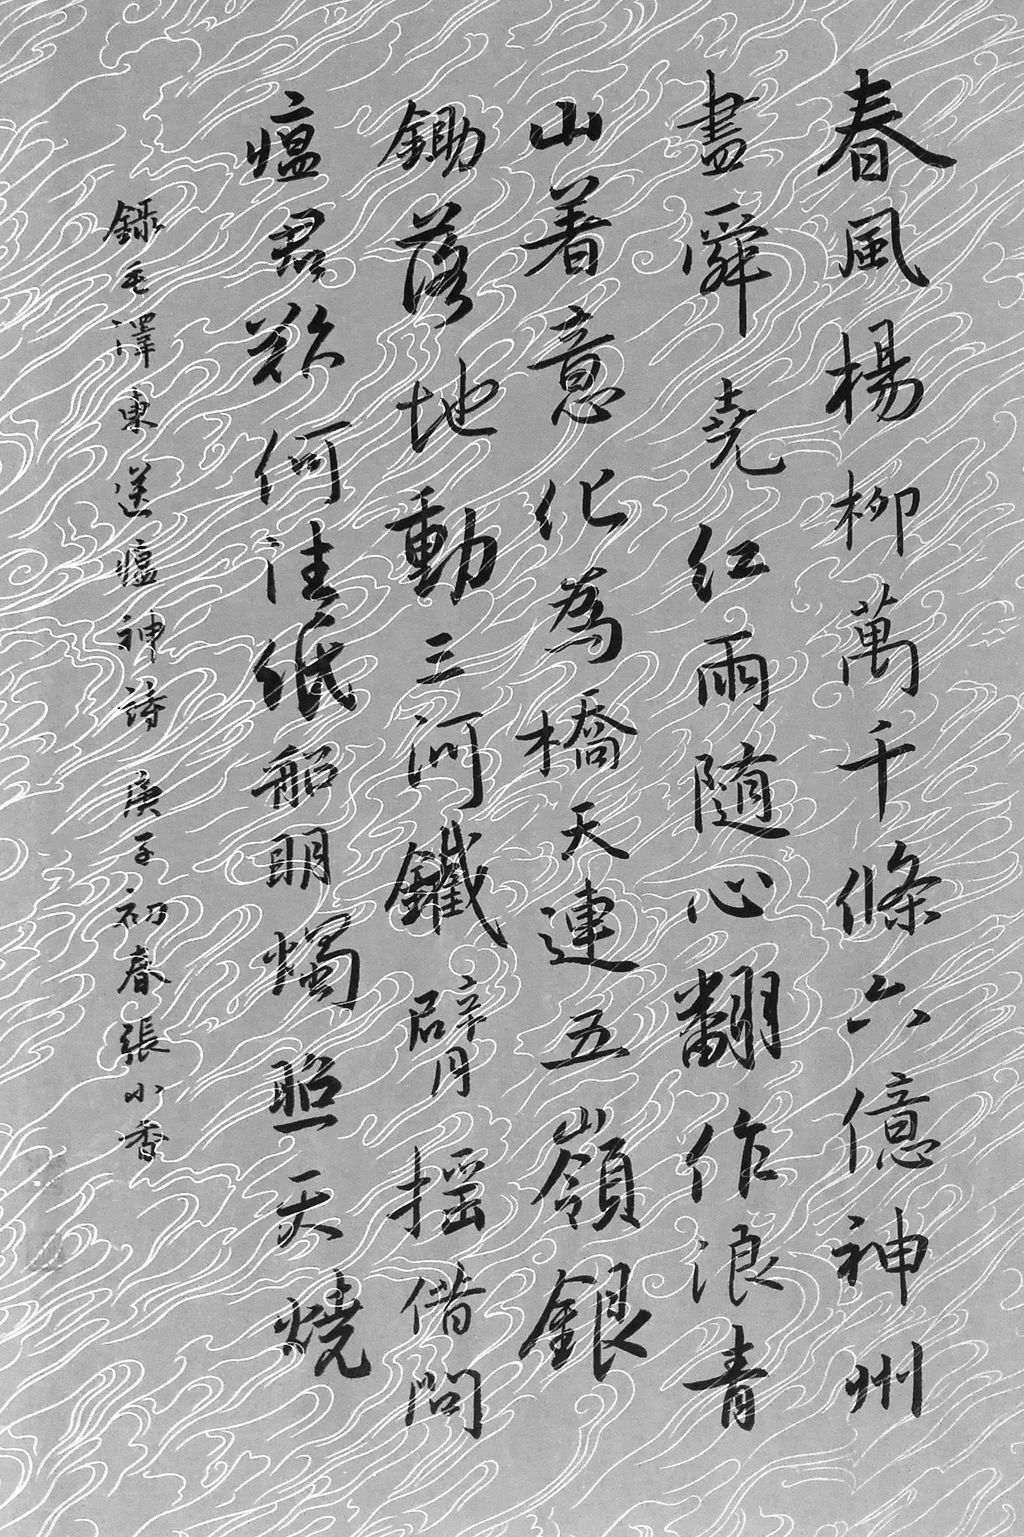 春風楊柳萬千條六億神州
盡舜堯紅雨隨心翻作浪青
山着意化為橋天連五嶺銀
鋤落地動三河鐵臂搖借問
瘟君欲何往紙船明燭照天燒
錄毛澤東送瘟神詩庚子初春張小香